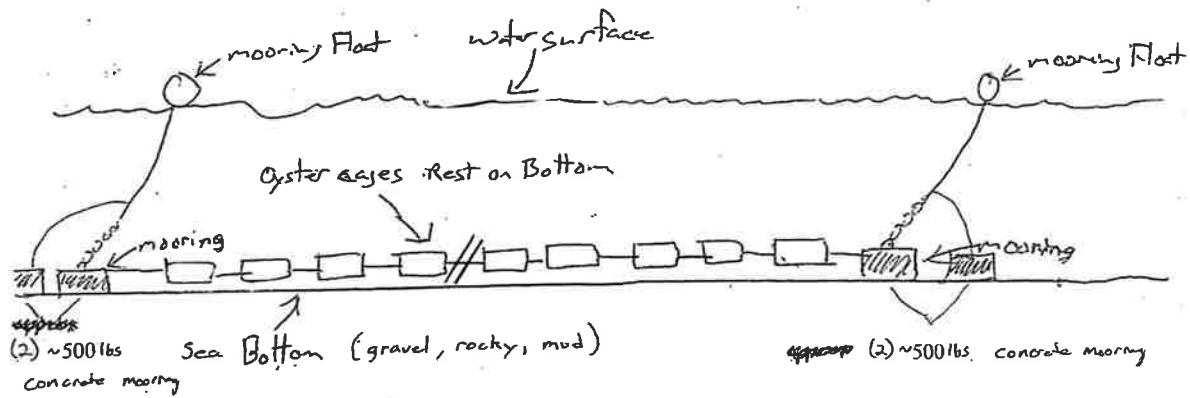 mooring Float
water surface
mooring Float
Oyster cages Rest on Bottom
mooring
mooring
(2) ~500 lbs
concrete mooring
Sea Bottom (gravel, rocky, mud)
(2) ~500 lbs. concrete mooring